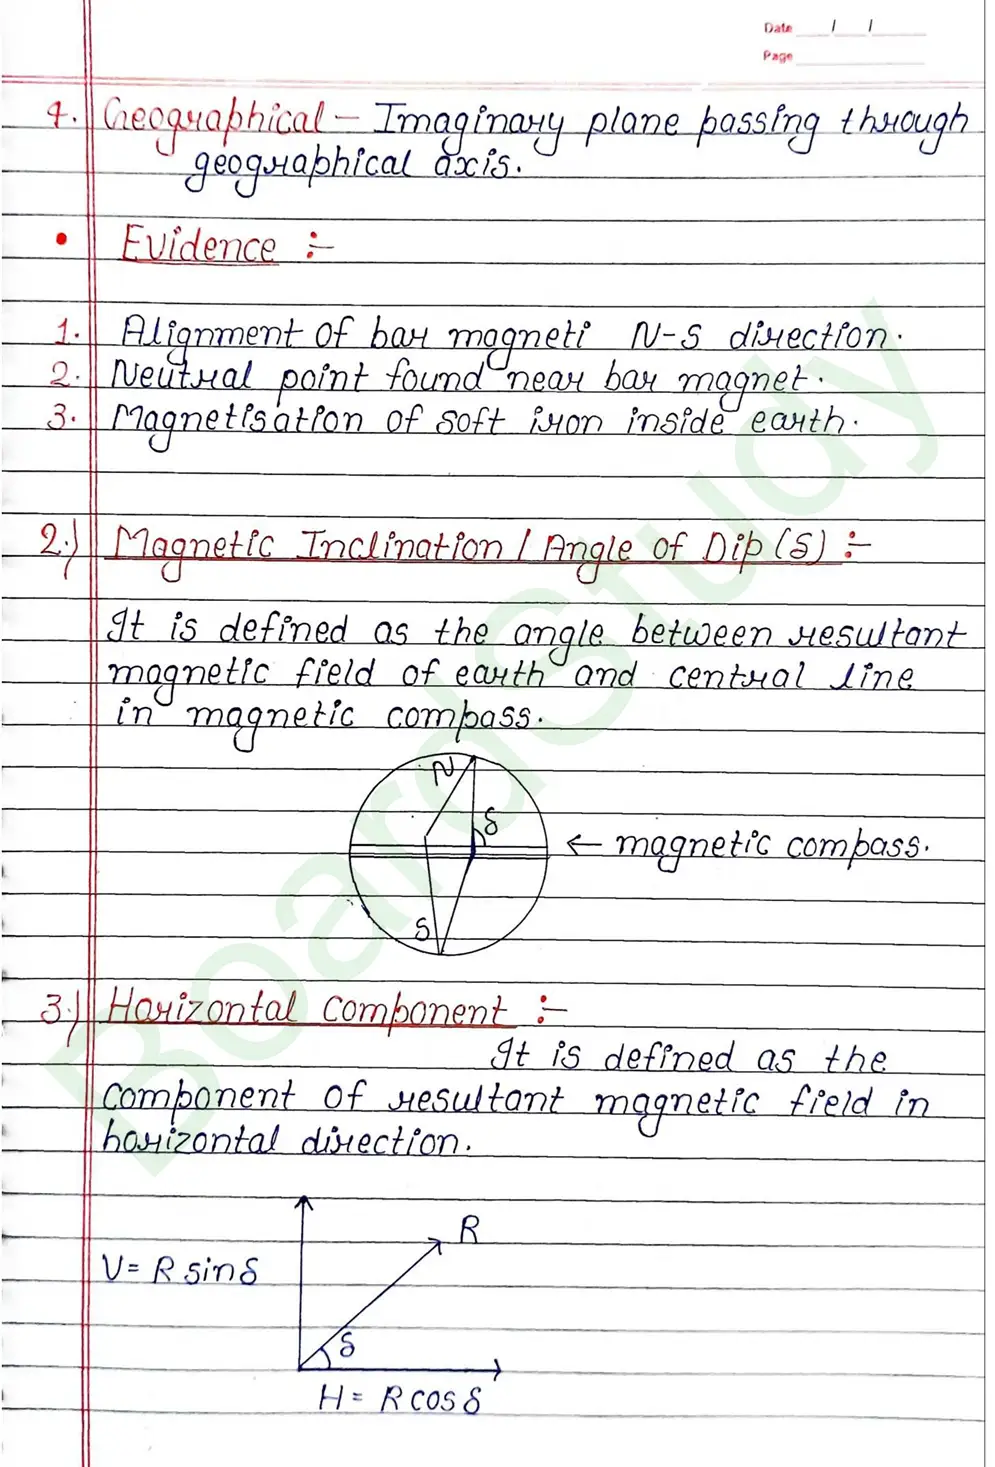 Date / /
Page
4. Geographical - Imaginary plane passing through
geographical axis.
• Evidence :-
1. Alignment of bar magneti N-S direction.
2. Neutral point found near bar magnet.
3. Magnetisation of soft iron inside earth.
2.) Magnetic Inclination / Angle of Dip (δ) :-
It is defined as the angle between resultant
magnetic field of earth and central line
in magnetic compass.
N
δ
← magnetic compass.
S
3.) Horizontal Component :-
It is defined as the
component of resultant magnetic field in
horizontal direction.
R
V = R sin δ
δ
H = R cos δ
BoardStudy